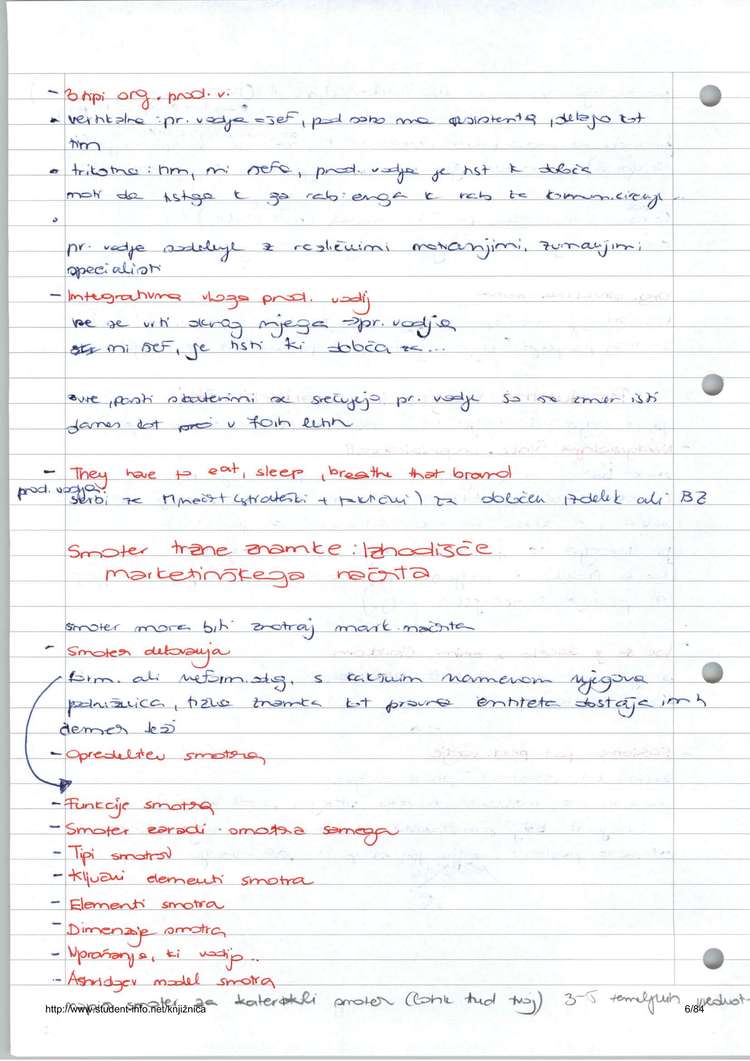 - 3 tipi org. prod. v.
• vertikalna: pr. vodja = šef, pod sabo ma asistenta, delajo kot
tim
• trikotna: tim, ni šefa, prod. vodja je tist k določa
moti da tistga k za rab. enga k rab ta komunicirajo
•
pr. vodje sodeluje z različnimi notranjimi, zunanjimi
specialisti
- Integrativna vloga prod. vodij
vse se vrti okrog njega → pr. vodja
ni šef, je tisti ki določa za...
sure, posti s katerimi se srečujejo pr. vodje so se zmer isti
danes kot v 70ih letih
- They have to eat, sleep, breathe that brand
prod. vodja:
skrbi za (strateški + taktični) za določen izdelek ali BZ
Smoter tržne znamke: Izhodišče
marketinškega načrta
smoter mora biti znotraj mark. načrta
- Smoter delovanja
form. ali neform. odg. s kakšnim namenom njegova
podružnica, tržna znamka kot pravna entiteta obstaja in h
čemer teži
- Opredelitev smotra
- Funkcije smotra
- Smoter zaradi smotra samega
- Tipi smotrov
- Ključni elementi smotra
- Elementi smotra
- Dimenzije smotra
- Vprašanja, ki vodijo..
- Ashridgev model smotra
smoter za katerikoli smoter (lohk tud tvoj) 3-5 temeljnih vrednot
http://www.student-info.net/knjižnica
6/84